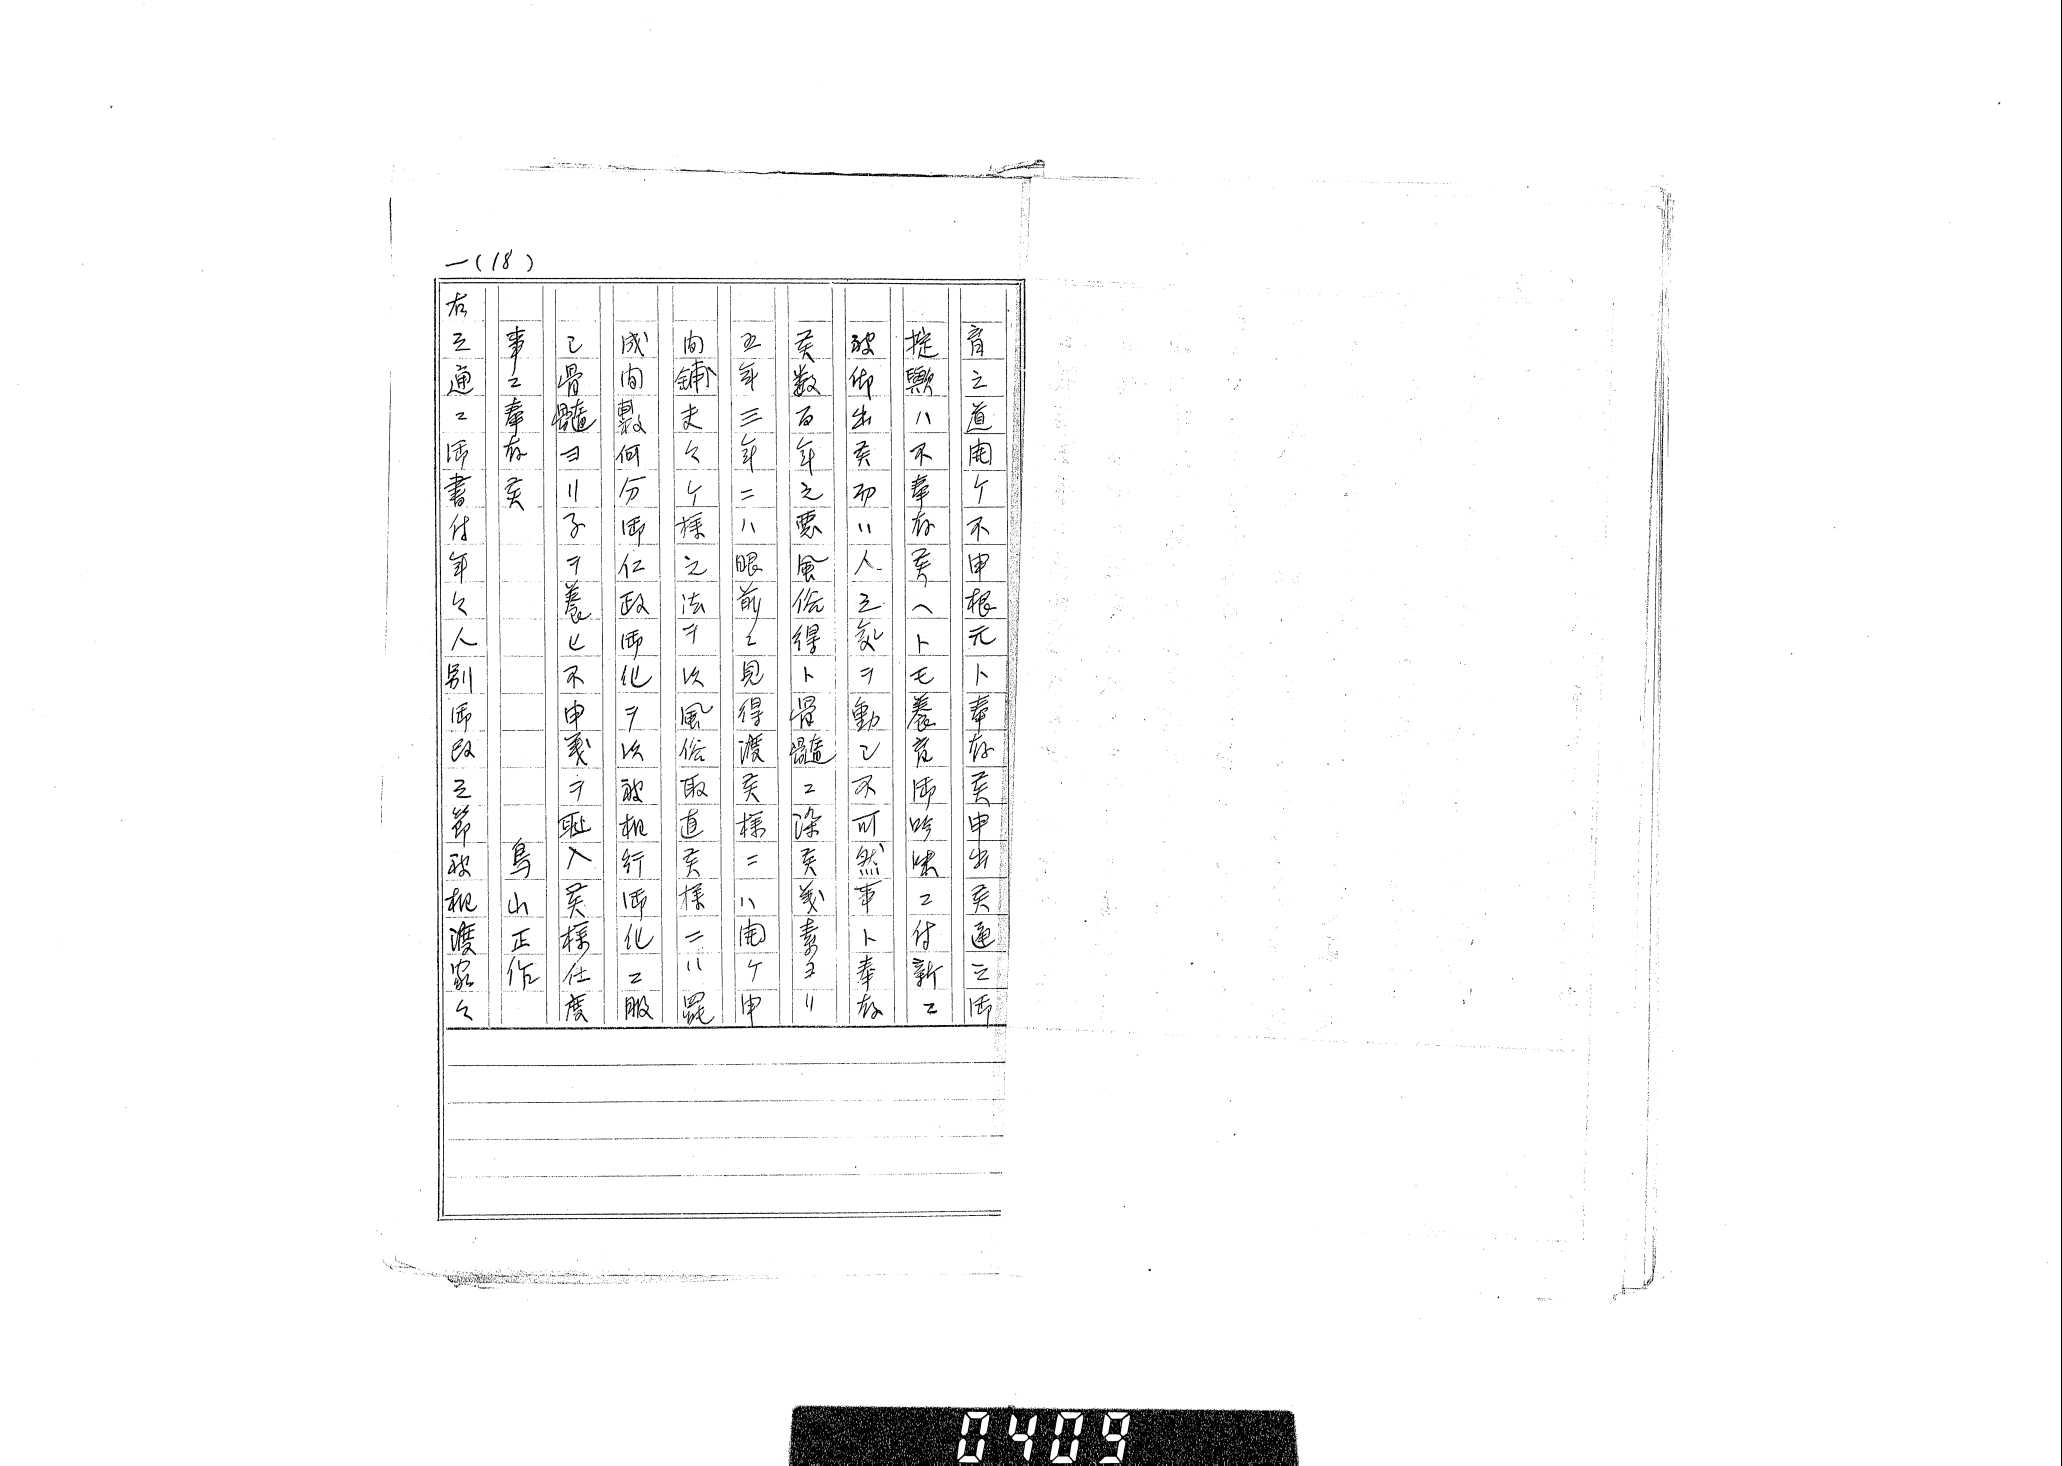 一(18)
育之道開ケ不申根元ト奉存候申出候通之御
掟歟ハ不奉存候ヘトモ養育御吟味ニ付新ニ
被仰出候而ハ人之気ヲ動シ不可然事ト奉存
候数百年之悪風俗得ト骨髄ニ染候義素ヨリ
五年三年ニハ眼前ニ見得渡候様ニハ開ケ申
間鋪夫々ケ様之法ヲ以風俗取直候様ニハ罷
成間敷何分御仁政御化ヲ以被相行御化ニ服
シ骨髄ヨリ子ヲ養ヒ不申義ヲ耻入候様仕度
事ニ奉存候　鳥山正作
右之通ニ御書付年々人別御改之節被相渡家々
0409